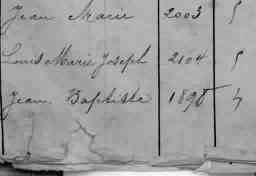 Jean Marie 2003 5
Louis Marie Joseph 2104 5
Jean Baptiste 1898 4